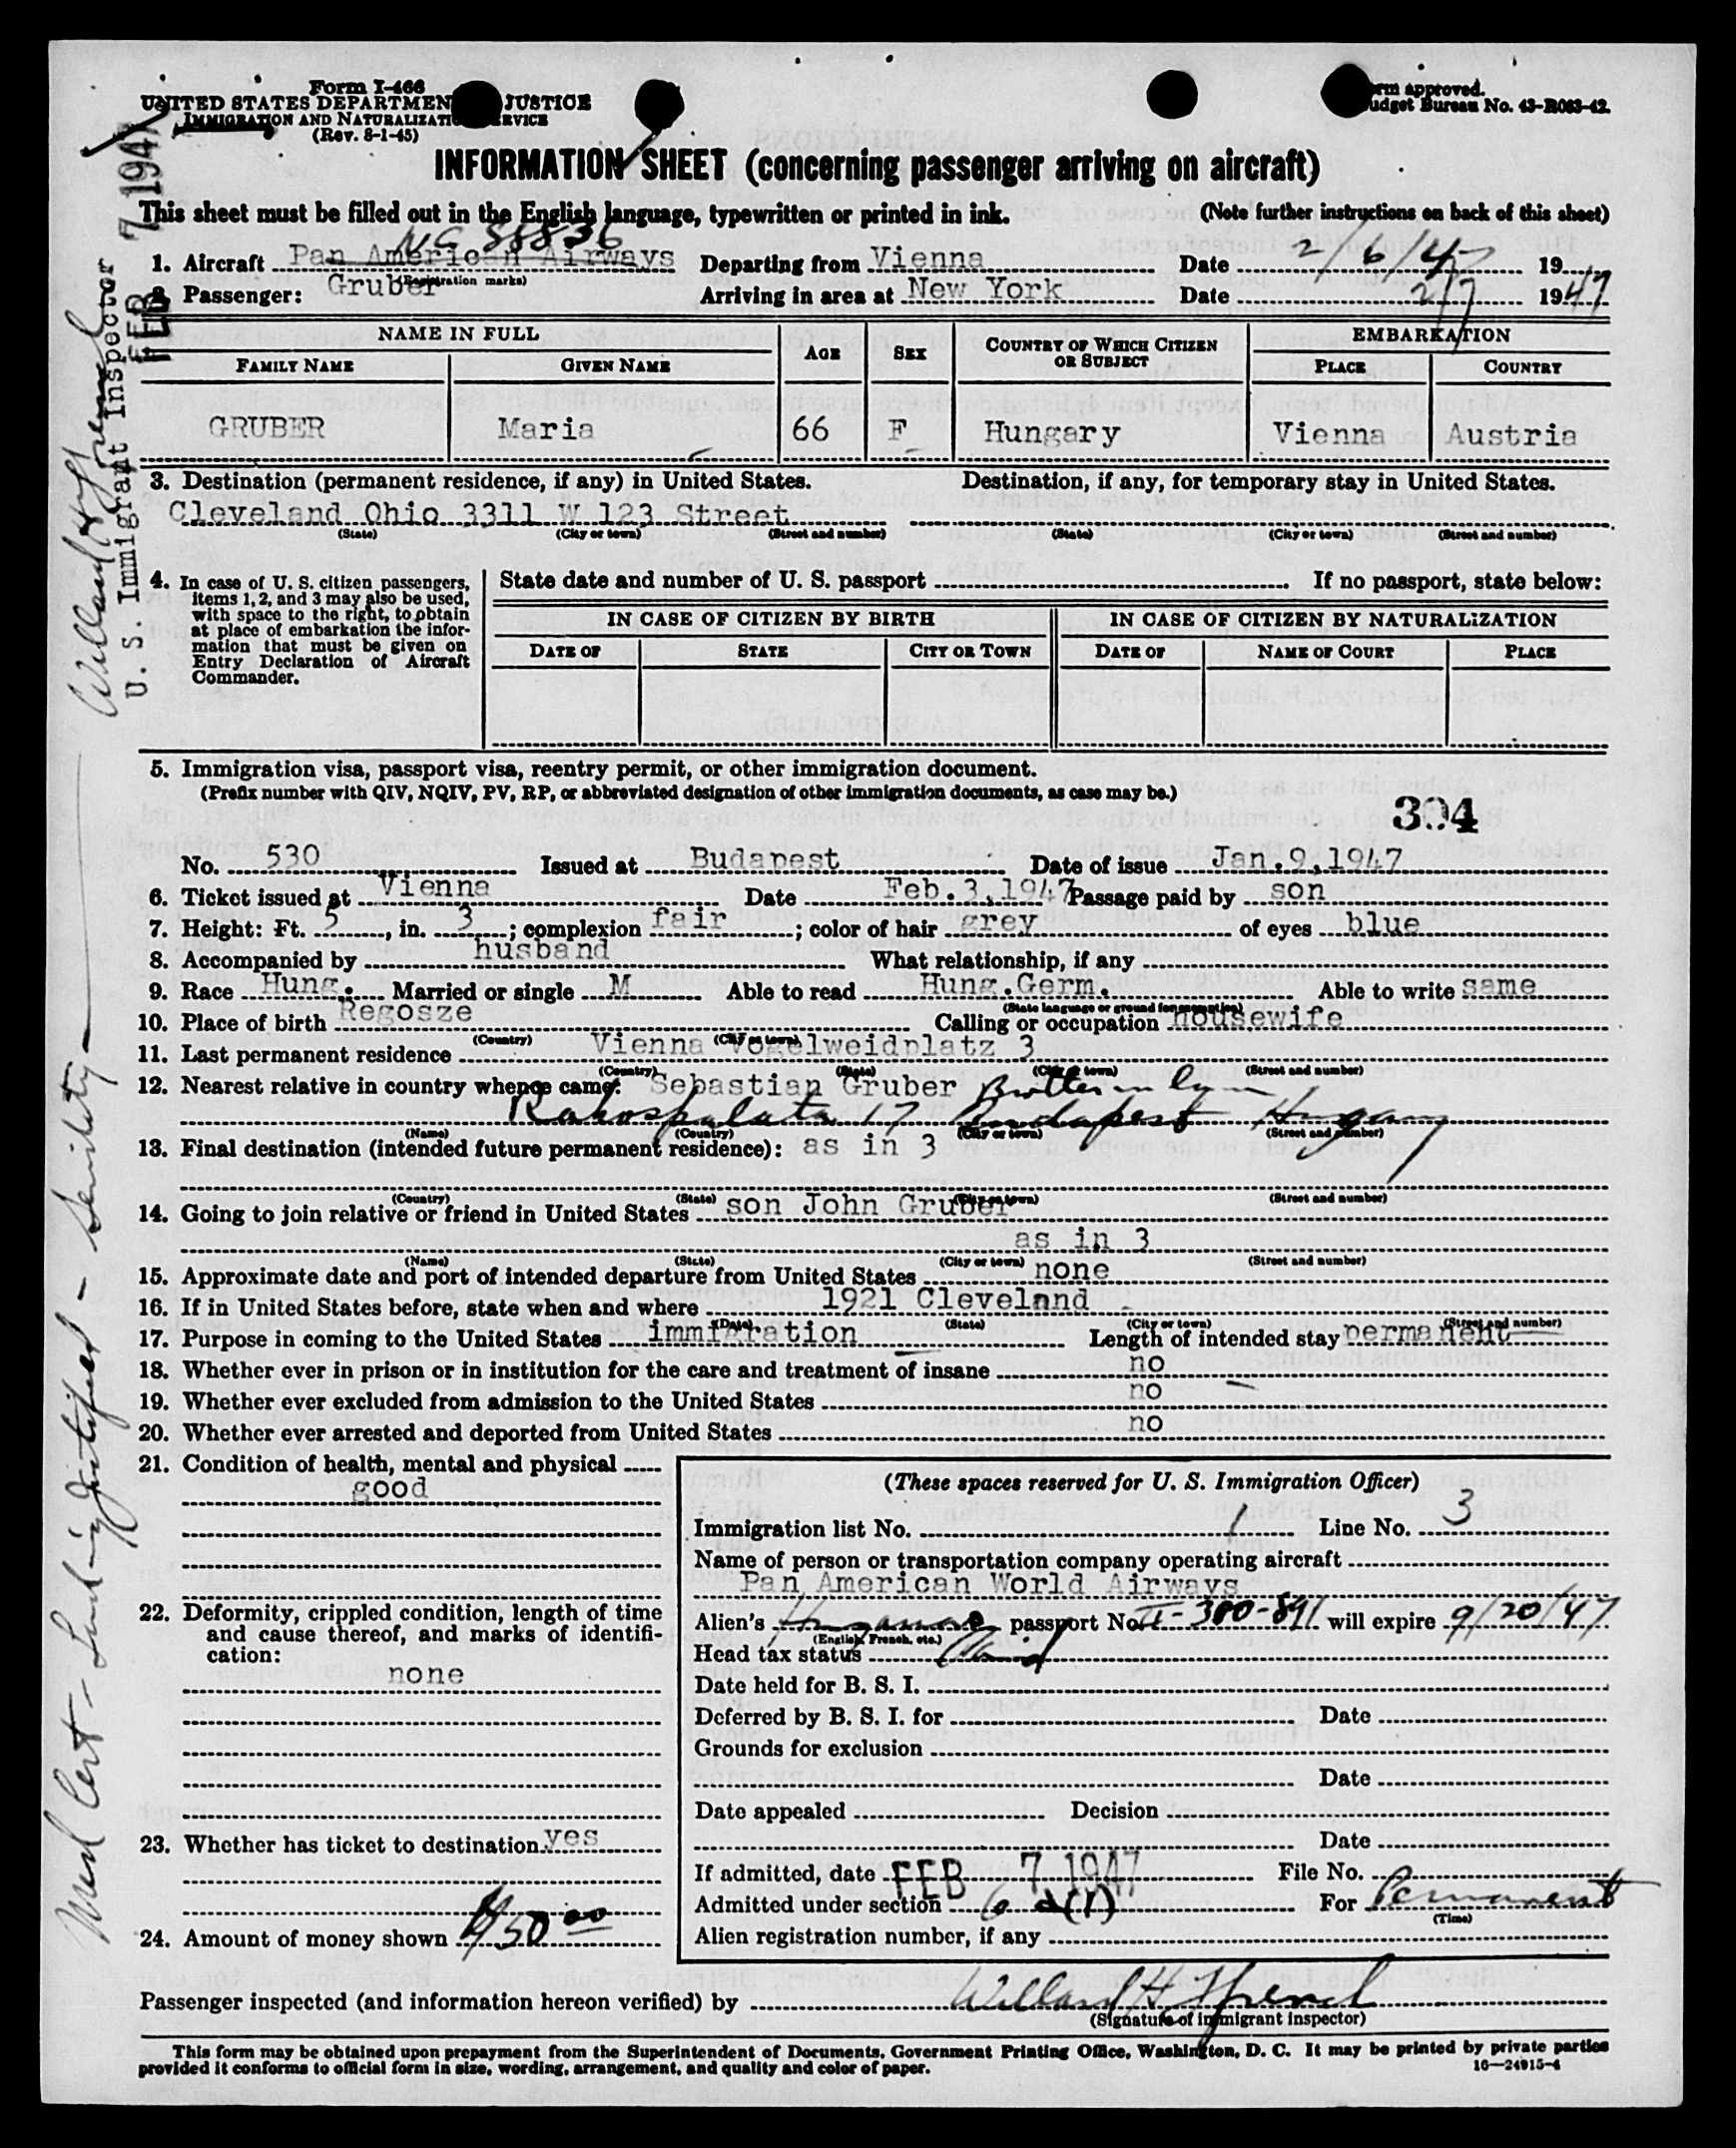 Form I-466
UNITED STATES DEPARTMENT JUSTICE
IMMIGRATION AND NATURALIZATION SERVICE
(Rev. 8-1-45)
Form approved.
Budget Bureau No. 43-R063-42.
INFORMATION SHEET (concerning passenger arriving on aircraft)
This sheet must be filled out in the English language, typewritten or printed in ink. (Note further instructions on back of this sheet)
NC 88836
1. Aircraft Pan American Airways Departing from Vienna Date 2/6/47 19
(Registration marks)
2. Passenger: Gruber Arriving in area at New York Date 2/7 1947
NAME IN FULL AGE SEX COUNTRY OF WHICH CITIZEN OR SUBJECT EMBARKATION
FAMILY NAME GIVEN NAME PLACE COUNTRY
GRUBER Maria 66 F Hungary Vienna Austria
3. Destination (permanent residence, if any) in United States. Destination, if any, for temporary stay in United States.
Cleveland Ohio 3311 W 123 Street
(State) (City or town) (Street and number) (State) (City or town) (Street and number)
4. In case of U. S. citizen passengers, items 1, 2, and 3 may also be used, with space to the right, to obtain at place of embarkation the information that must be given on Entry Declaration of Aircraft Commander.
State date and number of U. S. passport If no passport, state below:
IN CASE OF CITIZEN BY BIRTH IN CASE OF CITIZEN BY NATURALIZATION
DATE OF STATE CITY OR TOWN DATE OF NAME OF COURT PLACE
5. Immigration visa, passport visa, reentry permit, or other immigration document.
(Prefix number with QIV, NQIV, PV, RP, or abbreviated designation of other immigration documents, as case may be.)
394
No. 530 Issued at Budapest Date of issue Jan.9,1947
6. Ticket issued at Vienna Date Feb.3,1947 Passage paid by son
7. Height: Ft. 5, in. 3; complexion fair; color of hair grey of eyes blue
8. Accompanied by husband What relationship, if any
9. Race Hung. Married or single M Able to read Hung.Germ. Able to write same
(State language or ground for exemption)
10. Place of birth Regosze Calling or occupation housewife
(Country) (City or town)
11. Last permanent residence Vienna Vogelweidplatz 3
(Country) (State) (City or town) (Street and number)
12. Nearest relative in country whence came: Sebastian Gruber Brother in
Rakospalota 17 Budapest Hungary
(Name) (Country) (City or town) (Street and number)
13. Final destination (intended future permanent residence): as in 3
(Country) (State) (City or town) (Street and number)
14. Going to join relative or friend in United States son John Gruber
as in 3
(Name) (State) (City or town) (Street and number)
15. Approximate date and port of intended departure from United States none
16. If in United States before, state when and where 1921 Cleveland
(Date) (State) (City or town) (Street and number)
17. Purpose in coming to the United States immigration Length of intended stay permanent
18. Whether ever in prison or in institution for the care and treatment of insane no
19. Whether ever excluded from admission to the United States no
20. Whether ever arrested and deported from United States no
21. Condition of health, mental and physical
good
22. Deformity, crippled condition, length of time and cause thereof, and marks of identification:
none
23. Whether has ticket to destination yes
24. Amount of money shown $50.00
(These spaces reserved for U. S. Immigration Officer)
Immigration list No. 1 Line No. 3
Name of person or transportation company operating aircraft
Pan American World Airways
Alien's Hungarian passport No. II-380-891 will expire 9/20/47
(English, French, etc.)
Head tax status Paid
Date held for B. S. I.
Deferred by B. S. I. for Date
Grounds for exclusion
Date
Date appealed Decision
Date
If admitted, date FEB 7 1947 File No.
Admitted under section 6 a(1) For Permanent
(Time)
Alien registration number, if any
Passenger inspected (and information hereon verified) by Willard H. French
(Signature of immigrant inspector)
This form may be obtained upon prepayment from the Superintendent of Documents, Government Printing Office, Washington, D. C. It may be printed by private parties
provided it conforms to official form in size, wording, arrangement, and quality and color of paper. 16—24915-4
Med Cert - Senility
U. S. Immigrant Inspector
FEB 7 1947